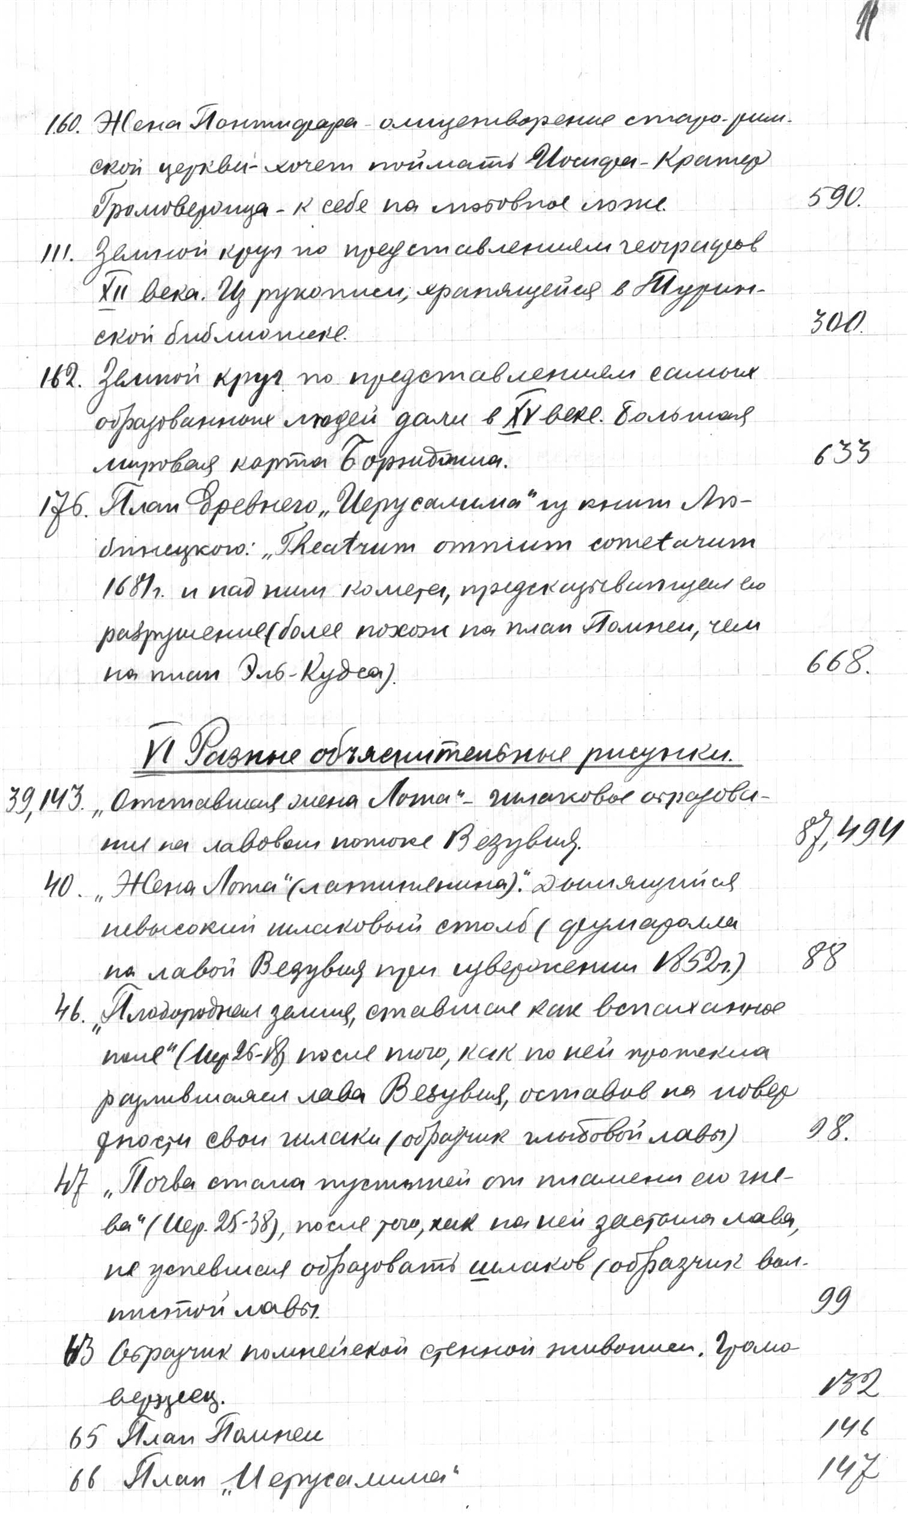 11
160. Жена Пантифара - олицетворение старо-рим-
ской церкви - хочет поймать Иосифа - Кратер
Громовержца - к себе на любовное ложе. 590.
111. Земной круг по представлениям географов
XII века. Из рукописи, хранящейся в Турин-
ской библиотеке. 300.
162. Земной круг по представлениям самых
образованных людей дали в XV веке. Большая
мировая карта Борждиа. 633
176. План Древнего „Иерусалима" из книги Лю-
бинецкого: „Theatrum omnium cometarum
1681г. и над ним комета, предсказывающая его
разрушение (более похож на план Помпеи, чем
на план Эль-Кудса). 668.
VI Разные объяснительные рисунки.
39,143. „Отставшая жена Лота" - шлаковое образова-
ние на лавовом потоке Везувия. 87,494
40. „Жена Лота" (латинянина)." Дымящийся
невысокий шлаковый столб (фумаролла
на лавой Везувия при извержении 1852г.) 88
46. „Плодородная земля, ставшая как вспаханное
поле" (Иер 26-18) после того, как по ней протекла
разлившаяся лава Везувия, оставив на повер
хности свои шлаки (образчик глыбовой лавы) 98.
47 „Почва стала пустыней от пламени его гне-
ва" (Иер. 25-38), после того, как на ней застыла лава,
не успевшая образовать шлаков (образчик вол-
нистой лавы. 99
63 Образчик помпейской стенной живописи. Громо
вержец. 132
65 План Помпеи 146
66 План „Иерусалима" 147